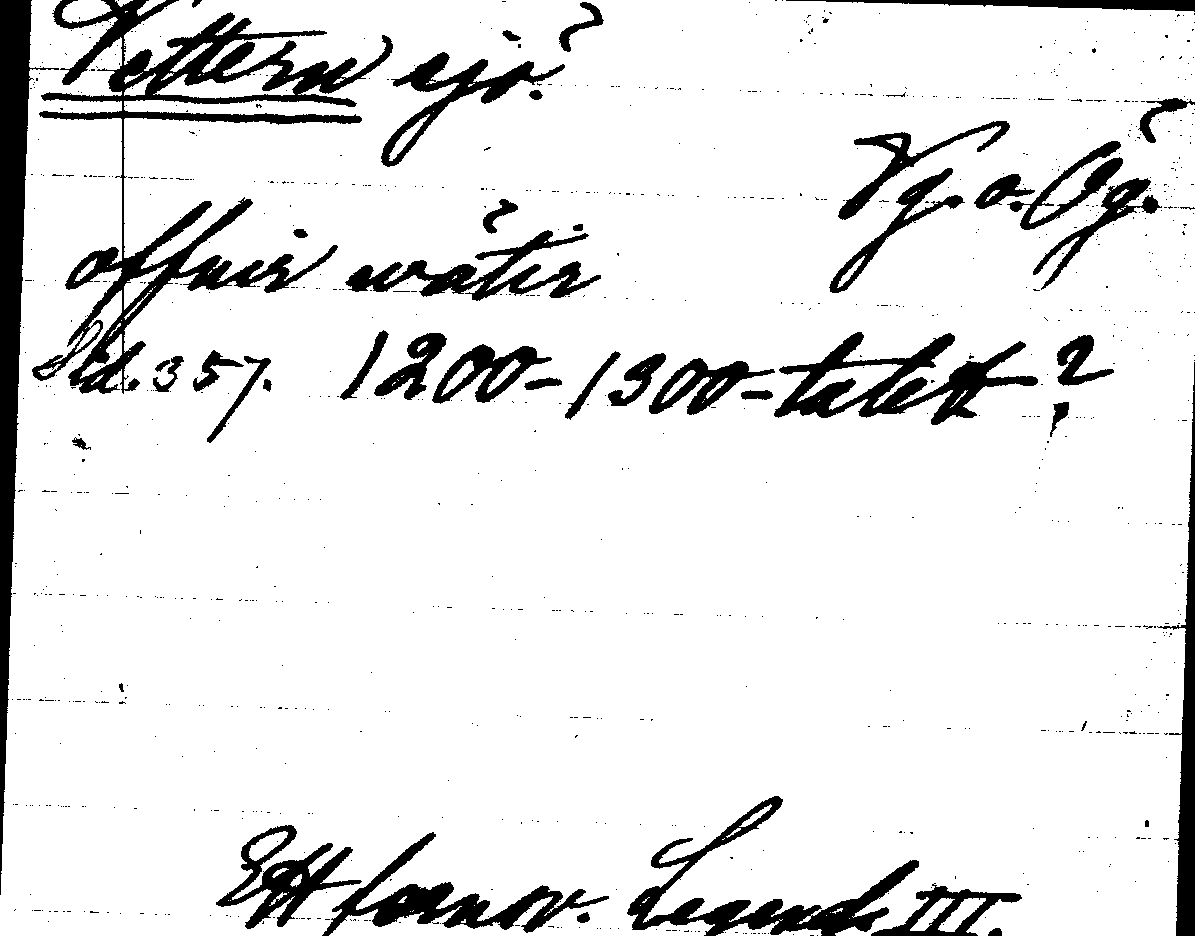 Vettern sjö.
Vg. o. Ög.
offuir wätir
Sid. 357. 1200-1300-talet?
Ett fornsv. Legend. III.